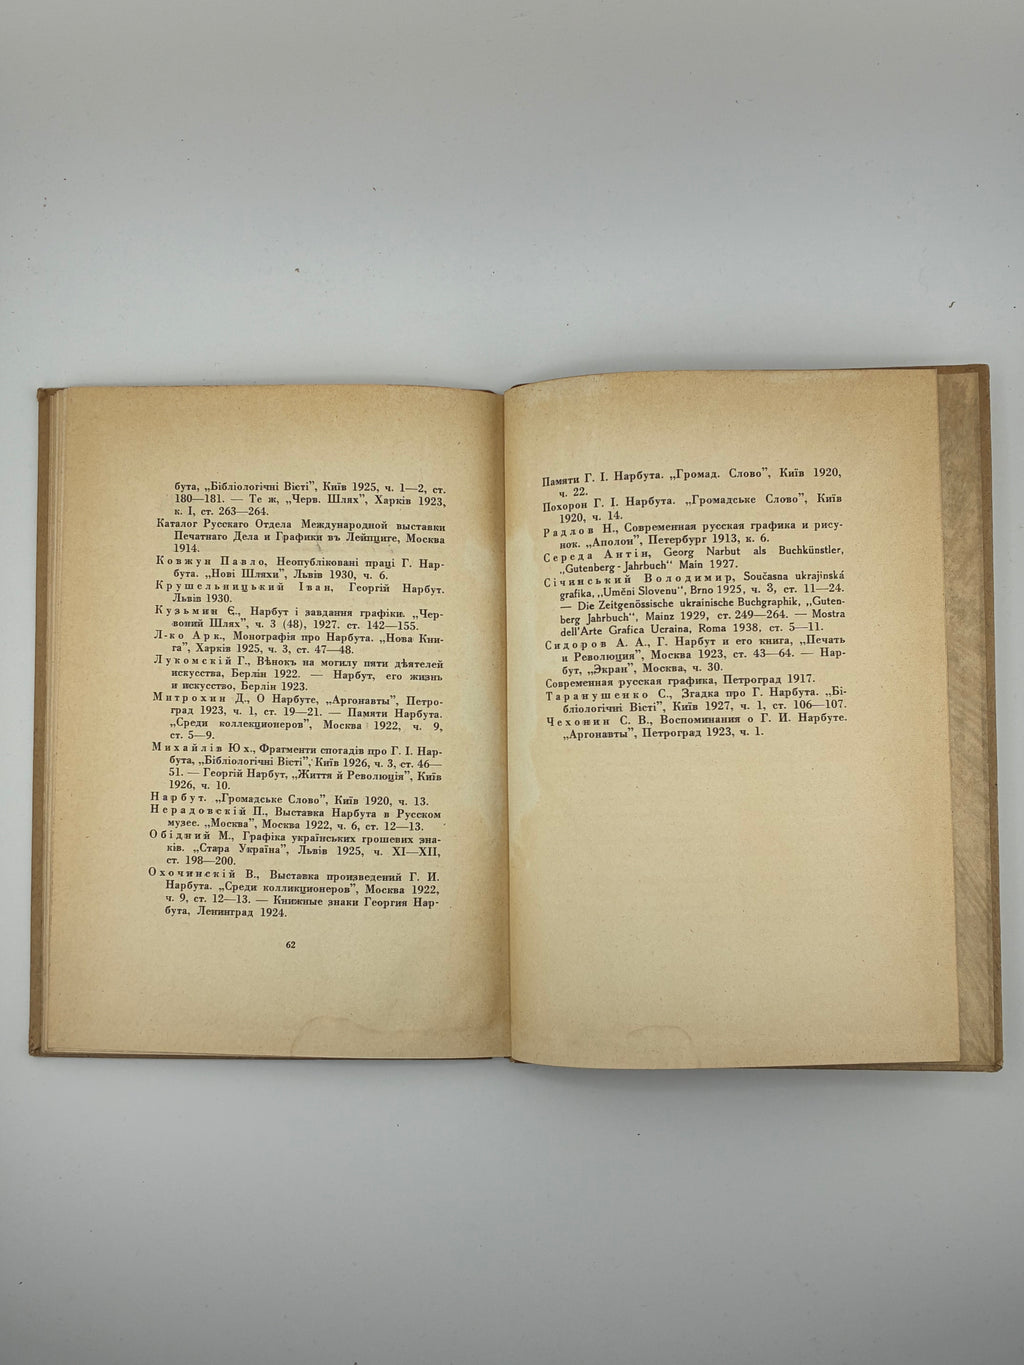 бута, „Бібліологічні Вісті”, Київ 1925, ч. 1—2, ст.
180—181. — Те ж, „Черв. Шлях”, Харків 1923,
к. І, ст. 263—264.
Каталог Русскаго Отдела Международной выставки
Печатнаго Дела и Графики въ Лейпциге, Москва
1914.
Ковжун Павло, Неопубліковані праці Г. Нар-
бута. „Нові Шляхи”, Львів 1930, ч. 6.
Крушельницький Іван, Георгій Нарбут.
Львів 1930.
Кузьмин Є., Нарбут і завдання графіки. „Чер-
воний Шлях”, ч. 3 (48), 1927. ст. 142—155.
Л-ко Арк., Монографія про Нарбута. „Нова Кни-
га”, Харків 1925, ч. 3, ст. 47—48.
Лукомскій Г., Вѣнокъ на могилу пяти дѣятелей
искусства, Берлін 1922. — Нарбут, его жизнь
и искусство, Берлін 1923.
Митрохин Д., О Нарбуте, „Аргонавты”, Петро-
град 1923, ч. 1, ст. 19—21. — Памяти Нарбута.
„Среди коллекционеров”, Москва 1922, ч. 9,
ст. 5—9.
Михайлів Юх., Фрагменти спогадів про Г. І. Нар-
бута, „Бібліологічні Вісті”, Київ 1926, ч. 3, ст. 46—
51. — Георгій Нарбут, „Життя й Революція”, Київ
1926, ч. 10.
Нарбут. „Громадське Слово”, Київ 1920, ч. 13.
Нерадовскій П., Выставка Нарбута в Русском
музее. „Москва”, Москва 1922, ч. 6, ст. 12—13.
Обідний М., Графіка українських грошевих зна-
ків. „Стара Україна”, Львів 1925, ч. XI—XII,
ст. 198—200.
Охочинскій В., Выставка произведений Г. И.
Нарбута. „Среди колликционеров”, Москва 1922,
ч. 9, ст. 12—13. — Книжные знаки Георгия Нар-
бута, Ленинград 1924.
62
Памяти Г. І. Нарбута. „Громад. Слово”, Київ 1920,
ч. 22.
Похорон Г. І. Нарбута. „Громадське Слово”, Київ
1920, ч. 14.
Радлов Н., Современная русская графика и рису-
нок. „Аполон”, Петербург 1913, к. 6.
Середа Антін, Georg Narbut als Buchkünstler,
„Gutenberg-Jahrbuch“ Main 1927.
Січинський Володимир, Současna ukrajinská
grafika, „Umĕni Slovenu“, Brno 1925, ч. 3, ст. 11—24.
— Die Zeitgenössische ukrainische Buchgraphik, „Guten-
berg Jahrbuch“, Mainz 1929, ст. 249—264. — Mostra
dell'Arte Grafica Ucraina, Roma 1938, ст. 5—11.
Сидоров А. А., Г. Нарбут и его книга, „Печать
и Революция”, Москва 1923, ст. 43—64. — Нар-
бут, „Экран”, Москва, ч. 30.
Современная русская графика, Петроград 1917.
Таранушенко С., Згадка про Г. Нарбута. „Бі-
бліологічні Вісті”, Київ 1927, ч. 1, ст. 106—107.
Чехонин С. В., Воспоминания о Г. И. Нарбуте.
„Аргонавты”, Петроград 1923, ч. 1.